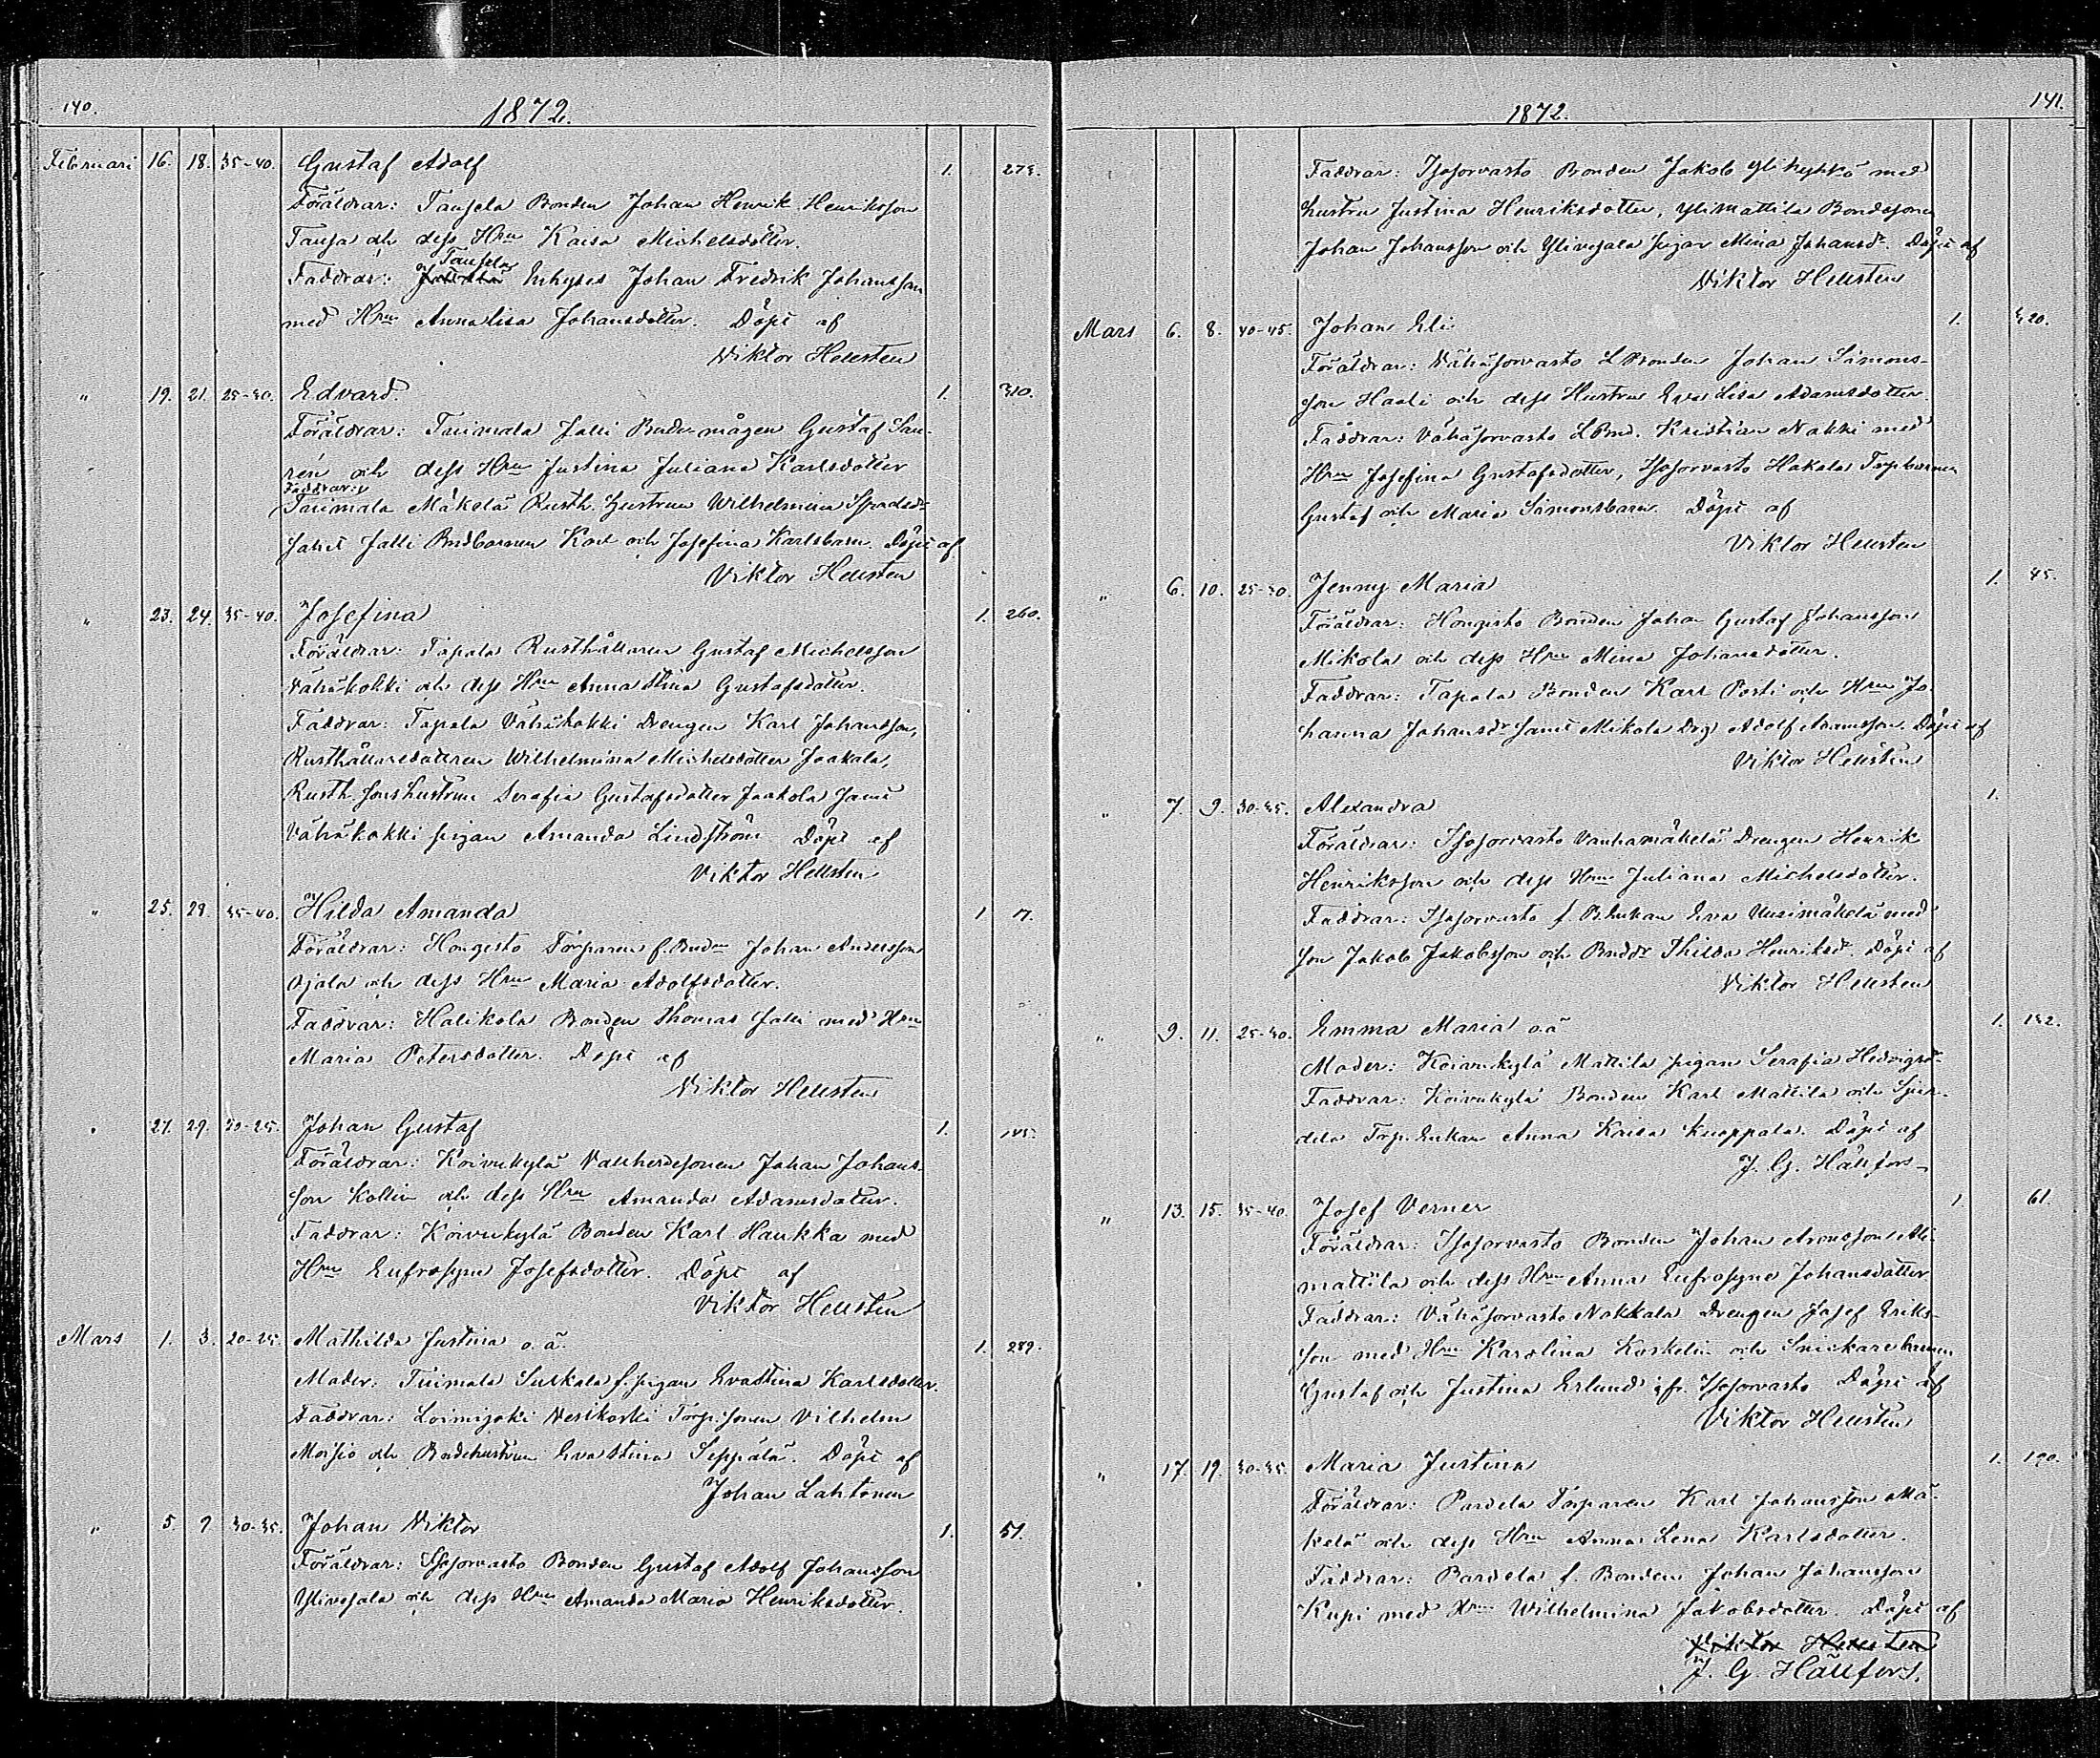 140.
1872.
Februari 16. 18. 35-40. Gustaf Adolf 1. 273.
Föräldrar: Tausela Bonden Johan Henrik Henriksson
Tausa och dess Hru Kaisa Michelsdotter.
Tausela
Faddrar: Enkyses Johan Fredrik Johansson
med Hru Anna Lisa Johansdotter. Döpt af
Viktor Hellsten
" 19. 21. 25-30. Edvard. 1. 310.
Föräldrar: Tuimala Jalli Bondemågen Gustaf San-
rén och dess Hru Justina Juliana Karlsdotter
Faddrar:
Tuimala Mäkelä Rusth. hustrun Wilhelmina
samt Jalli Bndbarnen Karl och Josefina Karlsbarn. Döpt af
Viktor Hellsten
" 23. 24. 35-40. Josefina 1. 260.
Föräldrar: Tapala Rusthållaren Gustaf Michelsson
Vähäkokki och dess Hru Anna Stina Gustafsdotter.
Faddrar: Tapala Vähäkokki Drengen Karl Johansson,
Rusthållaredottren Wilhelmina Michelsdotter Jaakola,
Rusth. sonshustrun Serafia Gustafsdotter Jaakola samt
Vähäkokki pigan Amanda Lindström. Döpt af
Viktor Hellsten
" 25. 29. 35-40. Hilda Amanda 1. 17.
Föräldrar: Hongisto Torparen f. Bnden Johan Andersson
Ojala och dess Hru Maria Adolfsdotter.
Faddrar: Halikola Bonden Thomas Jalli med Hru
Maria Petersdotter. Döpt af
Viktor Hellsten
" 27. 29. 20-25. Johan Gustaf 1. 145.
Föräldrar: Koivukylä Vallherdesonen Johan Johans-
son Kollin och dess Hru Amanda Adamsdotter.
Faddrar: Koivukylä Bonden Karl Haukka med
Hru Eufrosyne Josefsdotter. Döpt af
Viktor Hellsten
Mars 1. 3. 20-25. Mathilda Justina o.ä. 1. 289.
Moder: Tuimala Suskala f. pigan Eva Stina Karlsdotter.
Faddrar: Loimijoki Vesikoski Torp. sonen Vilhelm
Moisio och Bndehustrun Eva Stina Seppälä. Döpt af
Johan Lahtonen
" 5. 7. 30-35. Johan Viktor 1. 51.
Föräldrar: Isosorvasto Bonden Gustaf Adolf Johansson
Ylivesala och dess Hru Amanda Maria Henriksdotter.
1872.
141.
Faddrar: Isosorvasto Bonden Jakob Ylikyhkö med
hustru Justina Henriksdotter, Ylimattila Bondesonen
Johan Johansson och Ylivesala pigan Mina Johansdr. Döpt af
Viktor Hellsten
Mars 6. 8. 40-45. Johan Eli 1. 320.
Föräldrar: Vähäsorvasto L Bonden Johan Simons-
son Haali och dess Hustru Eva Lisa Adamsdotter.
Faddrar: Vähäsorvasto L Bnd. Kristian Nakki med
Hru Josefina Gustafsdotter, Isosorvasto Hakala Torpbarnen
Gustaf och Maria Simonsbarn. Döpt af
Viktor Hellsten
" 6. 10. 25-30. Jenny Maria 1. 45.
Föräldrar: Hongisto Bonden Johan Gustaf Johansson
Mikola och dess Hru Mina Johansdotter.
Faddrar: Tapala Bonden Karl Posti och Hru Jo-
hanna Johansdr samt Mikola Drg Adolf Adamsson. Döpt af
Viktor Hellsten
" 7. 9. 30-35. Alexandra 1.
Föräldrar: Isosorvasto Vanhamäkelä Drengen Henrik
Henriksson och dess Hru Juliana Michelsdotter.
Faddrar: Isosorvasto f. B. Enkan Eva Uusimäkelä med
son Jakob Jakobsson och Bnddr Thilda Henriksdr. Döpt af
Viktor Hellsten
" 9. 11. 25-30. Emma Maria o.ä 1. 132.
Moder: Koivukylä Mattila pigan Serafia Hedvigsdr.
Faddrar: Koivukylä Bonden Karl Mattila och
Torp. Enkan Anna Kaisa Kuoppala. Döpt af
J. G. Hällfors
" 13. 15. 35-40. Josef Verner 1. 61.
Föräldrar: Isosorvasto Bonden Johan Aronsson Ali-
mattila och dess Hru Anna Eufrosyne Johansdotter
Faddrar: Vähäsorvasto Nokkala Drengen Josef Eriks-
son med Hru Karolina Koskelin och Snickarebarnen
Gustaf och Justina Erlund ifr. Isosorvasto Döpt af
Viktor Hellsten
" 17. 19. 30-35. Maria Justina 1. 190.
Föräldrar: Pardela Torparen Karl Johansson Mä-
kelä och dess Hru Anna Lena Karlsdotter.
Faddrar: Pardela f. Bonden Johan Johansson
Kupi med Hru Wilhelmina Jakobsdotter. Döpt af
Viktor Hellsten
J. G. Hällfors.